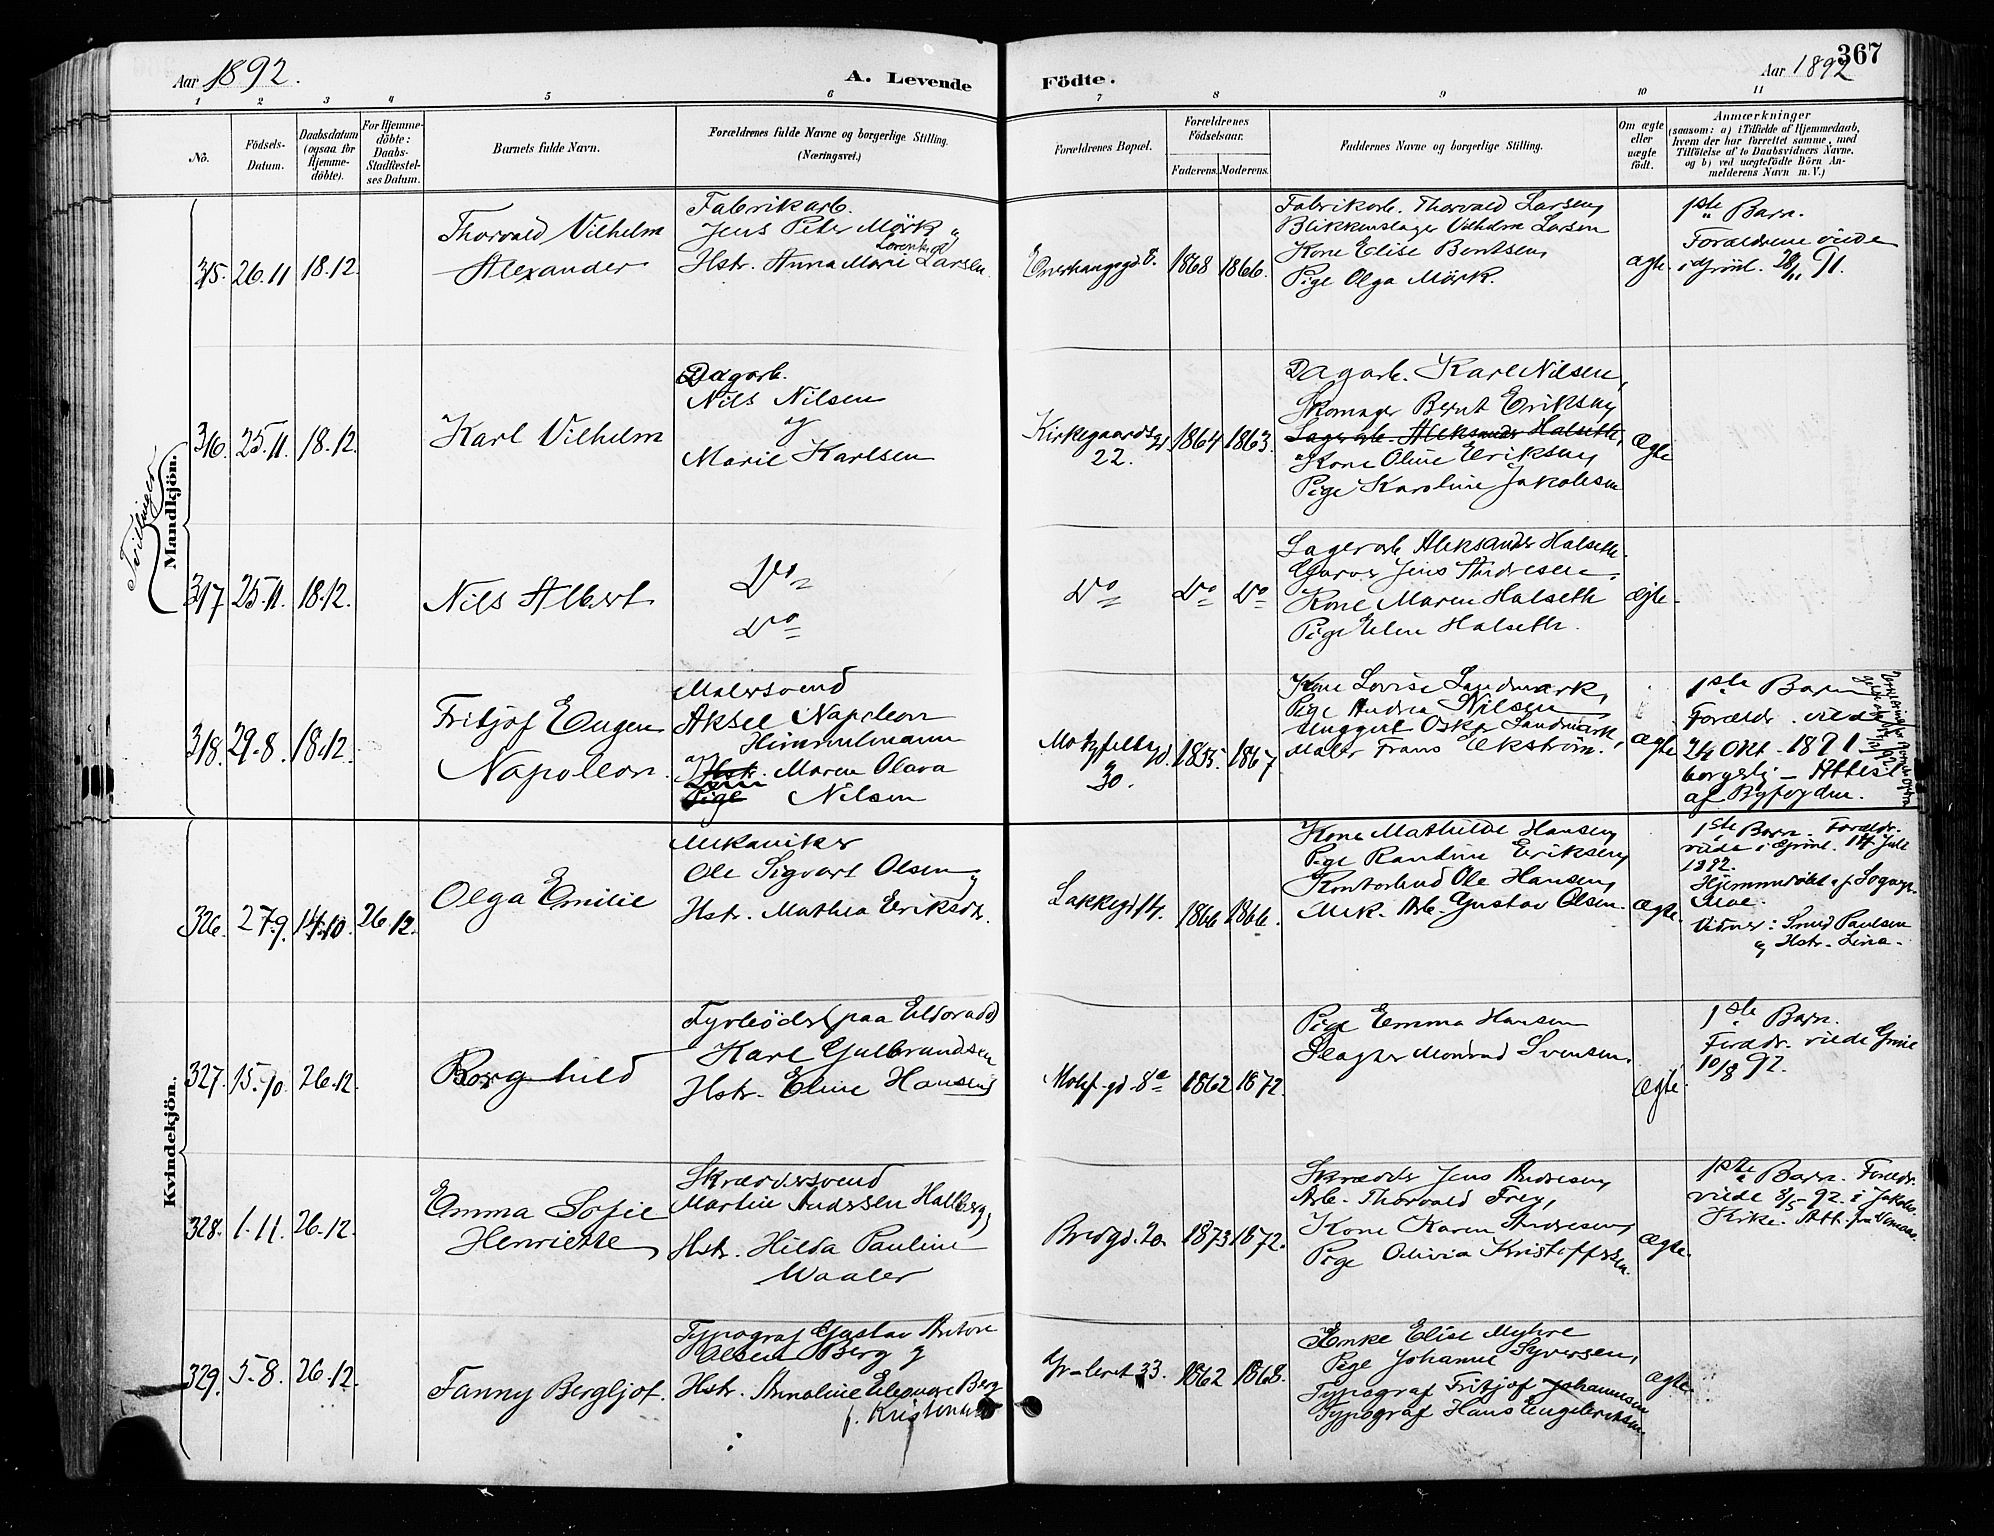 Aar 1892.
A. Levende Födte.
Aar 1892
367
1 2 3 4 5 6 7 8 9 10 11
No.
Födsels-Datum.
Daabsdatum (ogsaa for Hjemme-döbte).
For Hjemme-döbte: Daabs-Stadfæstel-ses Datum.
Barnets fulde Navn.
Forældrenes fulde Navne og borgerlige Stilling.
(Næringsvei.)
Forældrenes Bopæl.
Forældrenes Födselsaar.
Faderens. Moderens.
Faddernes Navne og borgerlige Stilling.
Om ægte eller uægte födt.
Anmærkninger
(saasom: a) i Tilfælde af Hjemmedaab,
hvem der har forrettet samme, med
Tilföielse af to Daabsvidners Navne.
og b) ved uægtefödte Börn An-
melderens Navn m. V.)
Mandkjön.
Tvillinger
315. 26.11 18.12.
Thorvald Vilhelm
Alexander
Fabrikarb.
Jens Peter Mörk og
Lorentze
Hstr. Anna Marie Larsen.
1868 1866.
Fabrikarb. Thorvald Larsen,
Blikkenslager Vilhelm Larsen
Kone Elise Bentsen,
Pige Olga Mörk.
ægte.
1ste Barn.
Forældrene viede
i Grönl. 28/11 91.
316. 25.11. 18.12.
Karl Vilhelm
Dagarb.
Nils Nilsen
og
Marie Karlsen
Kirkegaardsgd.
22.
1864 1863.
Dagarb. Karl Nilsen,
Skomager Bernt Eriksen,
Lagerarb. Aleksander Halseth,
Kone Oline Eriksen,
Pige Karoline Jakobsen
Ægte
317 25.11. 18.12.
Nils Albert
Do
Do
Do Do Do
Lagerarb Aleksander Halseth.
Garver Jens Andresen,
Kone Maren Halseth
Pige Elen Halseth.
ægte.
318. 29-8. 18.12.
Fritjof Eugen
Napoleon.
Malersvend
Aksel Napoleon
Himmelmann
og Hstr. Maren Olava
Pige Nilsen
Motzfeldtsgd.
30.
1855. 1867
Kone Lovise Landmark,
Pige Andrea Nilsen
Huggert Oskar Landmark,
Maler Frans Ekström.
Ægte
1ste Barn
Foræld. viede
24 Okt. 1891
borgerlig – Attest
af Byfogden.
Kvindekjön.
326. 27.9. 14.10. 26.12.
Olga Emilie
Mekaniker
Ole Sigvart Olsen og
Hstr. Mathea Eriksdtr.
Lakkegd 14.
1866 1866.
Kone Mathilde Hansen,
Pige Randine Eriksen,
Kontorbud Ole Hansen,
Mek. Arb. Gustav Olsen.
Ægte.
1ste Barn. Foreldr.
viede i Grönl. 14 Juli
1892.
Hjemmedöbt af Sogнepr.
Vidner: Smed Paulsen
og Hstr. Lina.
327. 15.10. 26.12.
Borghild
Fyrböder (paa Eldorado)
Karl Gulbrandsen
Hstr. Eline Hansen
Motzf.gd. 8a
1862 1872.
Pige Emma Hansen
Slagter Monrad Svensen.
Ægte
1ste Barn.
Foreldr. viede Grönl
10/8 92.
328. 1.11. 26.12.
Emma Sofie
Henriette
Skræddersvend
Martin Andersen Hallberg,
Hstr. Hilda Pauline
Waaler
Bredgd. 20.
1873 1872.
Skrædder Jens Andresen,
Arb. Thorvald Frey,
Kone Karen Andresen,
Pige Olivia Kristoffersen.
Ægte.
1ste Barn. Foreldr.
viede 8/5 92. i Jakobs
Kirke.
329. 5.8. 26.12.
Fanny Bergljot.
Typograf Gustav Anton
Olsen Berg og
Hstr. Annaline Eleonore Berg
f. Kristensen
Grönleret 33.
1862 1868.
Enke Elise Myhre
Pige Johanne Syversen,
Typograf Fritjof Johannesen
Typograf Hans Engebretsen.
ægte.